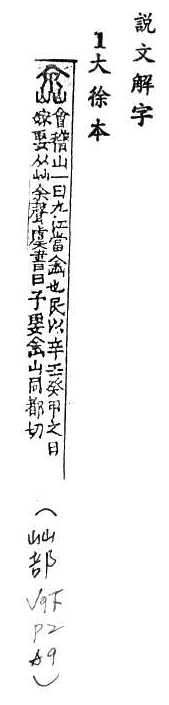 説文解字
1大徐本
嵞 會稽山一曰九江當嵞也民以辛壬癸甲之日
嫁娶从屾余聲虞書曰予娶嵞山同都切
(屾部
V9下
P2
A9)